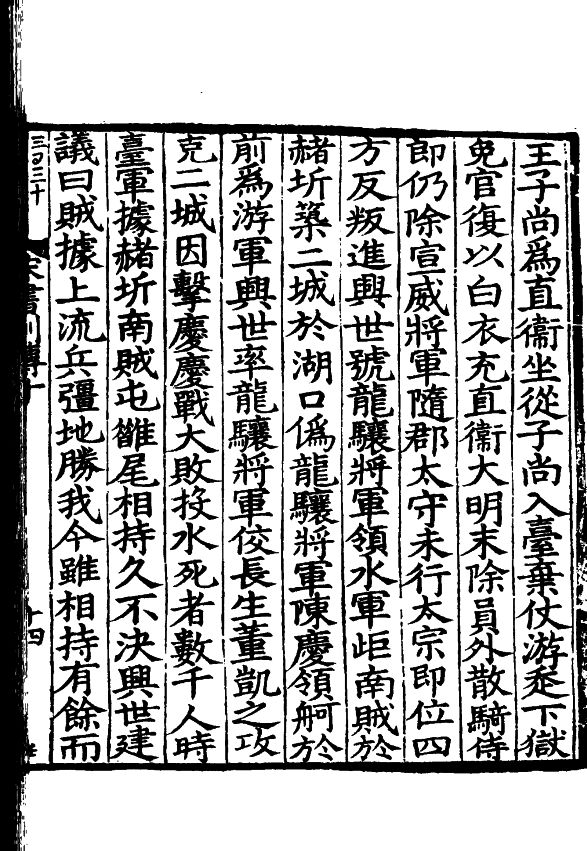 王子尚爲直衞坐從子尚入臺棄仗游走下獄
免官復以白衣充直衞大明末除員外散騎侍
郎仍除宣威將軍隨郡太守未行太宗即位四
方反叛進興世號龍驤將軍領水軍岠南賊於
赭圻築二城於湖口僞龍驤將軍陳慶領舸於
前爲游軍興世率龍驤將軍佼長生董凱之攻
克二城因擊慶慶戰大敗投水死者數千人時
臺軍據赭圻南賊屯鵲尾相持久不決興世建
議曰賊據上流兵彊地勝我今雖相持有餘而
宋書列傳十
十四